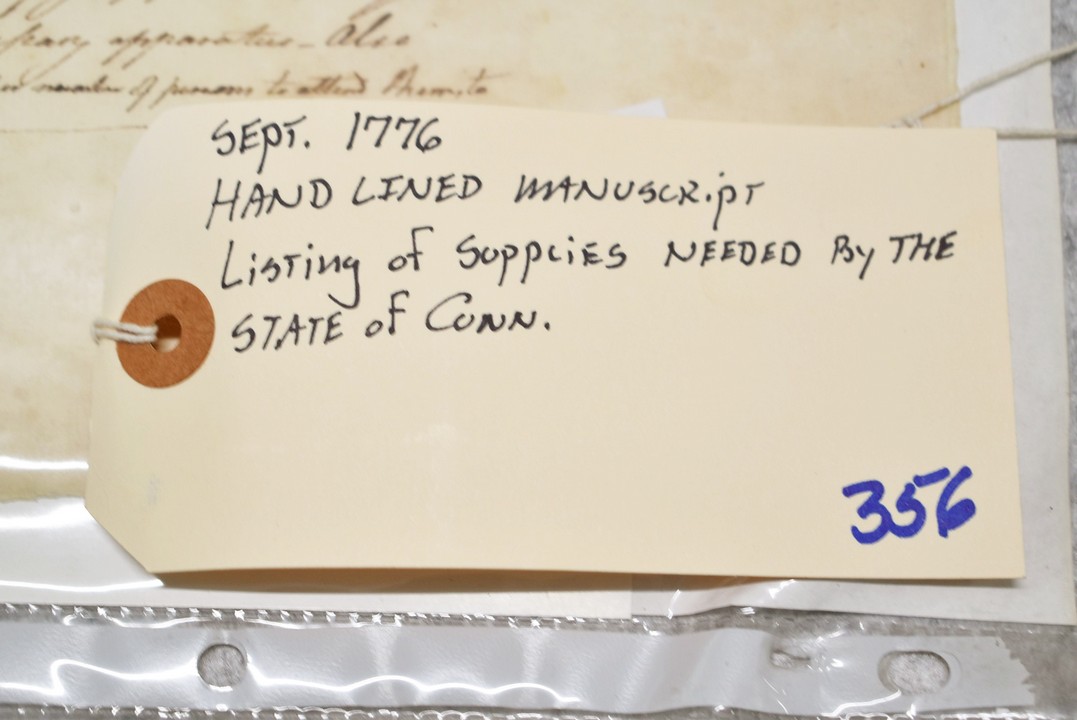 apparatus - Also
number of persons to attend them, to
SEPT. 1776
HAND LINED MANUSCRIPT
Listing of Supplies NEEDED By THE
STATE of CONN.
356